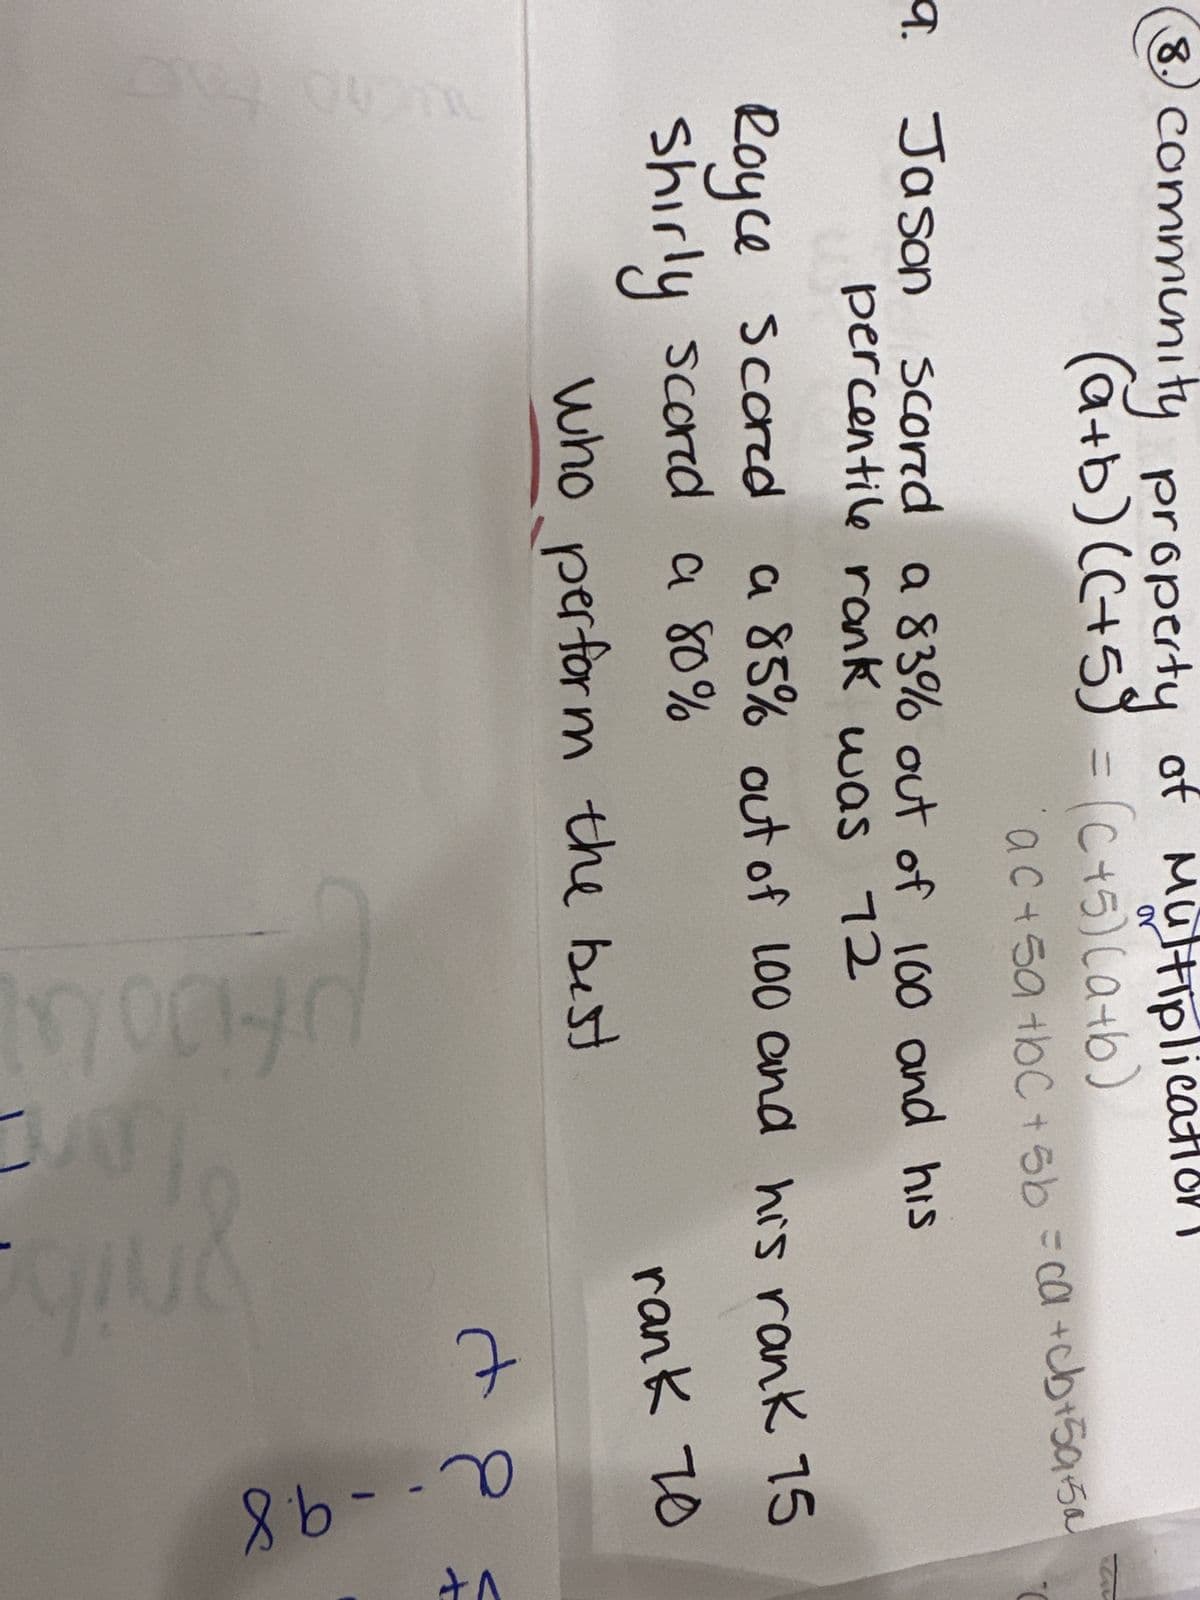 8. community property of Multiplication
(a+b)(c+5) = (c+5)(a+b)
ac+5a+bc+5b = ca+cb+5a+5a
9. Jason scored a 83% out of 100 and his
percentile rank was 72
Royce scored a 85% out of 100 and his rank 75
Shirly scored a 80% rank 70
who perform the best
9.8